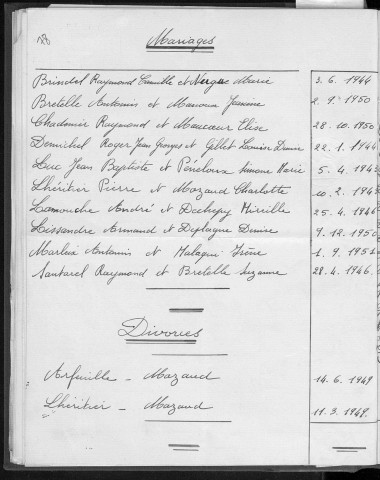 Mariages
Brindel Raymond Camille et Vergne Marie 3. 6. 1944
Bretelle Antonin et Manoux Jeanine 2. 9. 1950
Chadomir Raymond et Maucœur Elise 28. 10. 1950
Dumichel Roger Jean Georges et Gillet Louise Diane 22. 1. 1944
Luc Jean Baptiste et Pénéloux Simone Marie 5. 4. 1943
Lhéritier Pierre et Mazaud Charlotte 10. 2. 1943
Lamouche André et Dechepy Mireille 25. 4. 1946
Lissandre Armand et Deplagne Denise 9. 12. 1950
Marleix Antonin et Malaqui Irène 1. 9. 1951
Santarel Raymond et Bretelle Suzanne 28. 4. 1946
Divorces
Arfeuille - Mazaud 14. 6. 1949
Lhéritier - Mazaud 11. 3. 1949.